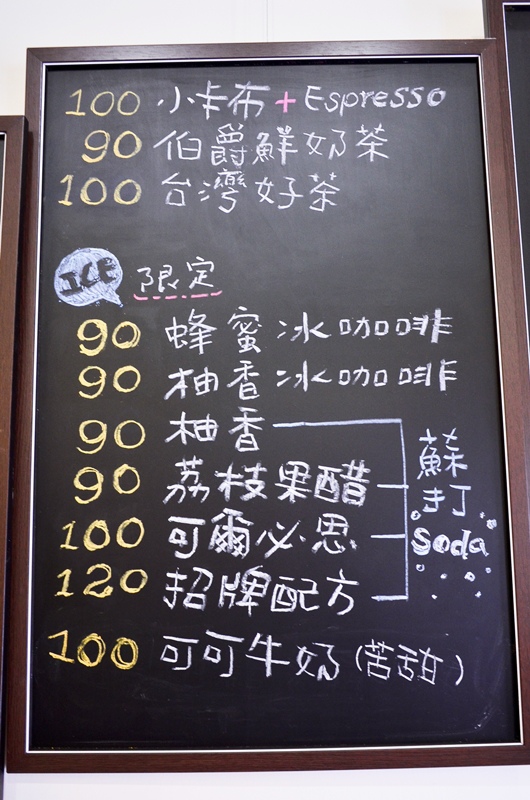 100 小卡布+Espresso
90 伯爵鮮奶茶
100 台灣好茶
ICE 限定
90 蜂蜜冰咖啡
90 柚香冰咖啡
90 柚香
90 荔枝果醋
100 可爾必思
120 招牌配方
蘇打
Soda
100 可可牛奶(苦甜)